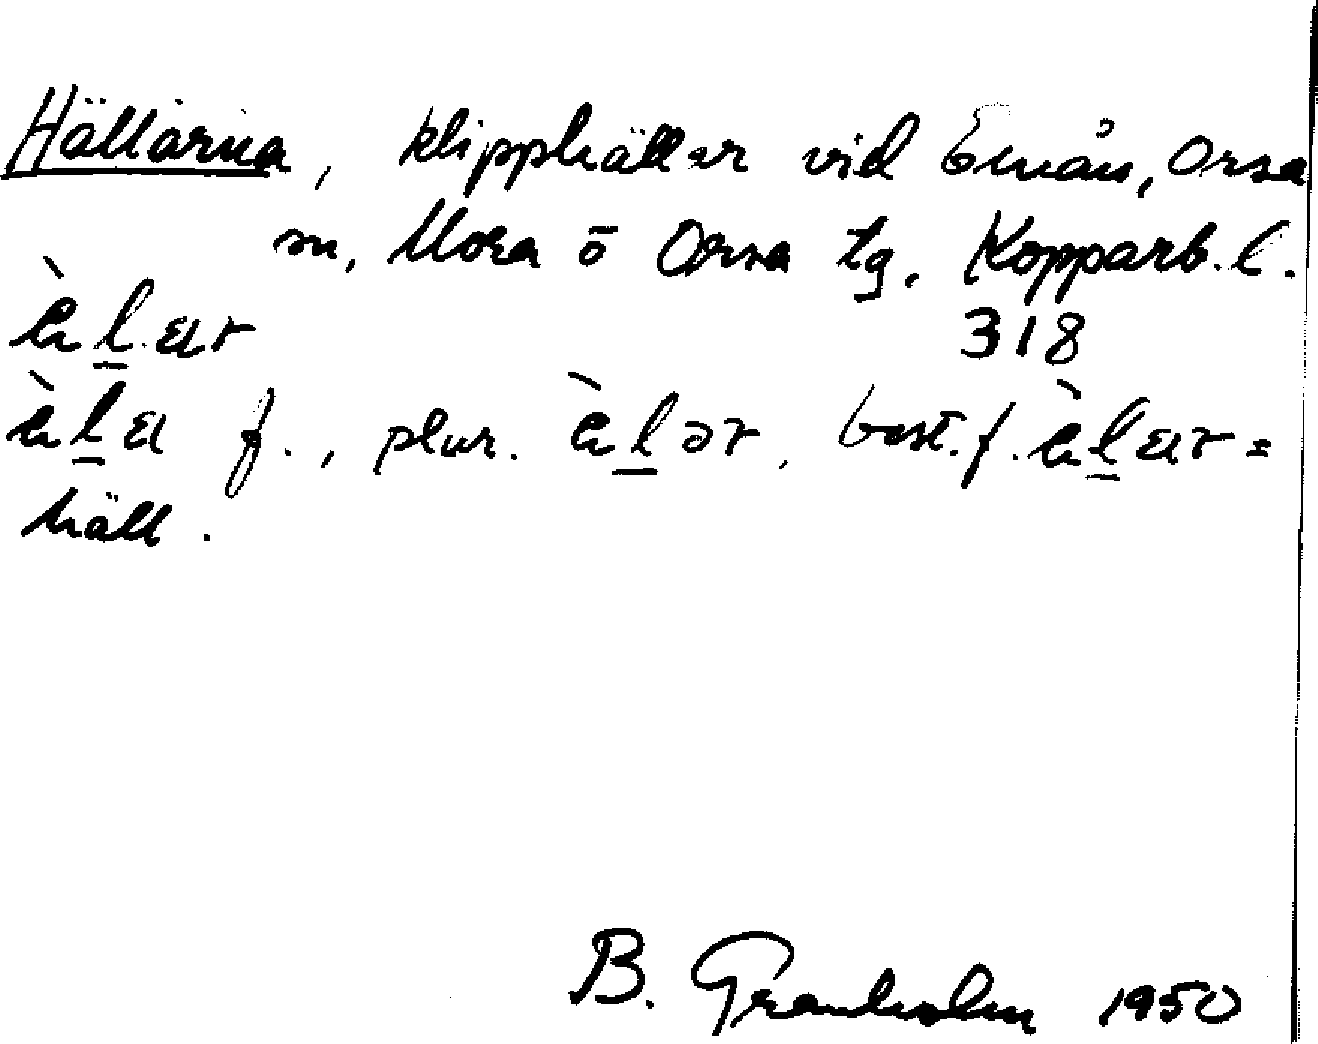 Hällarna, klipphällar vid Emån, Orsa
sn, Mora o Orsa tg. Kopparb. l.
318
f., plur. best. f. =
häll.
B. Granholm 1950